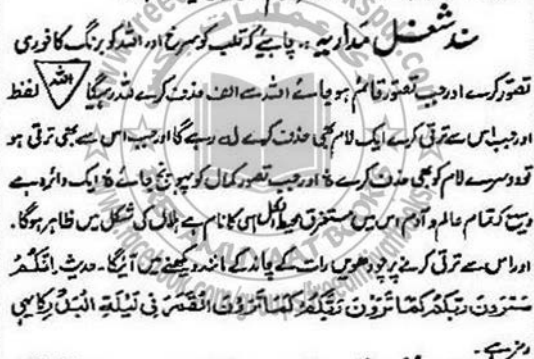 سند شغل مداریہ :۔ چاہیے کہ قلب کو سرخ اور اللہ کو برنگ کافوری
تصور کرے اور جب تصور قائم ہو جائے اللہ سے الف حذف کرے للہ رہیگا اللہ لفظ
اور جب اس سے ترقی کرے ایک لام بھی حذف کرے لہ رہے گا اور جب اس سے بھی ترقی ہو
تو دوسرے لام کو بھی حذف کرے ہ اور جب تصور کمال کو پہونچ جائے ہ ایک دائرہ ہے
وسیع کہ تمام عالم و آدم اس میں مستغرق محیط الکل اس کا نام ہے ہلال کی شکل میں ظاہر ہوگا۔
اور اس سے ترقی کرنے پر چودھویں رات کے چاند کے مانند دیکھنے میں آئیگا۔ حدیث اِنَّکُمْ
سَتَرَوْنَ رَبَّکُمْ کَمَا تَرَوْنَ الْقَمَرَ فِی لَیْلَۃِ الْبَدْرِ کا یہی
رمز ہے۔